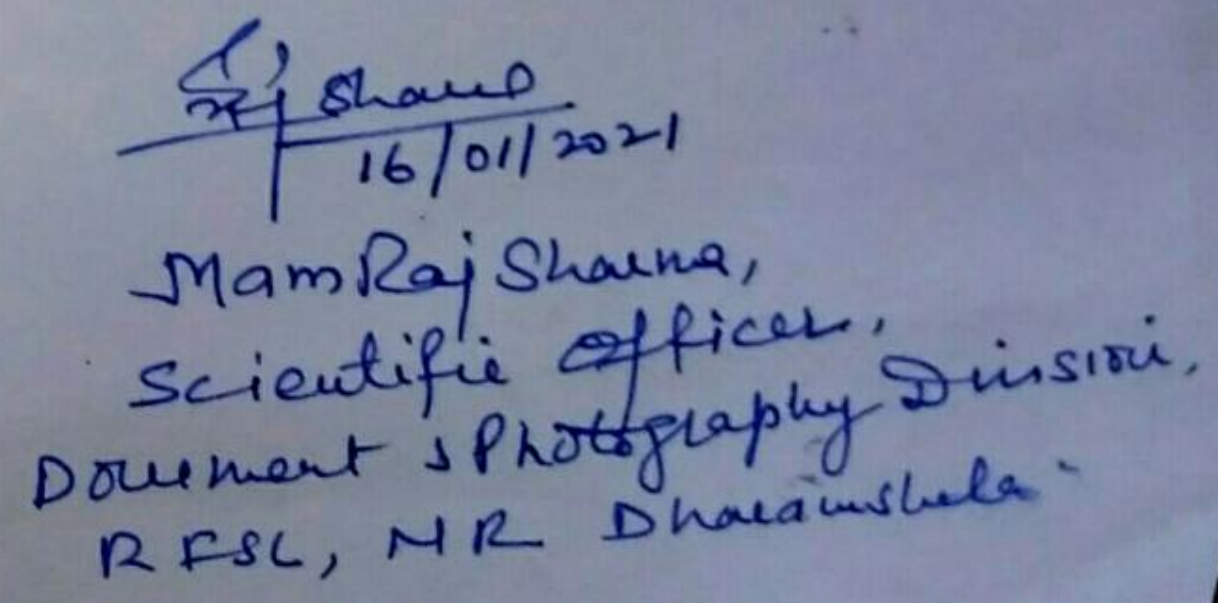 Sharma
16/01/2021
Mam Raj Sharma,
Scientific Officer,
Document & Photography Division,
RFSL, NR Dharamshala